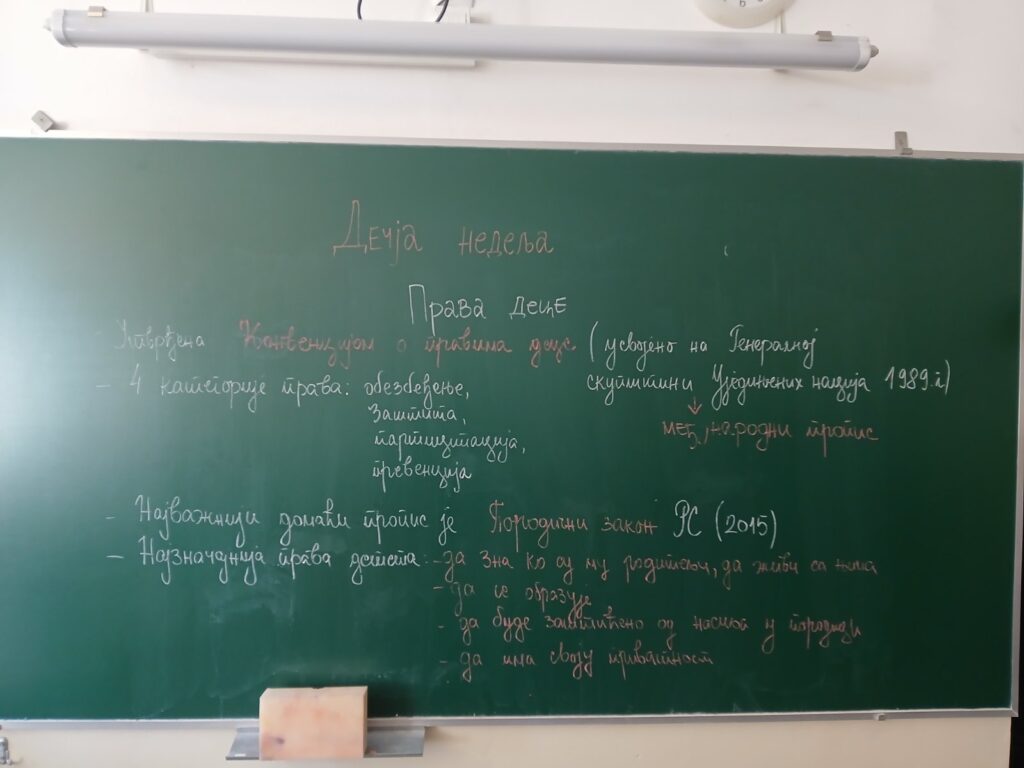 Дечја недеља
Права деце
- Утврђена Конвенцијом о правима деце (усвојено на Генералној
скупштини Уједињених нација 1989.г)
међународни пропис
- 4 категорије права: обезбеђење,
заштита,
партиципација,
превенција
- Најважнији домаћи пропис је Породични закон РС (2015)
- Најзначајнија права детета: - да зна ко су му родитељи, да живи са њима
- да се образује
- да буде заштићено од насиља у породици
- да има своју приватност